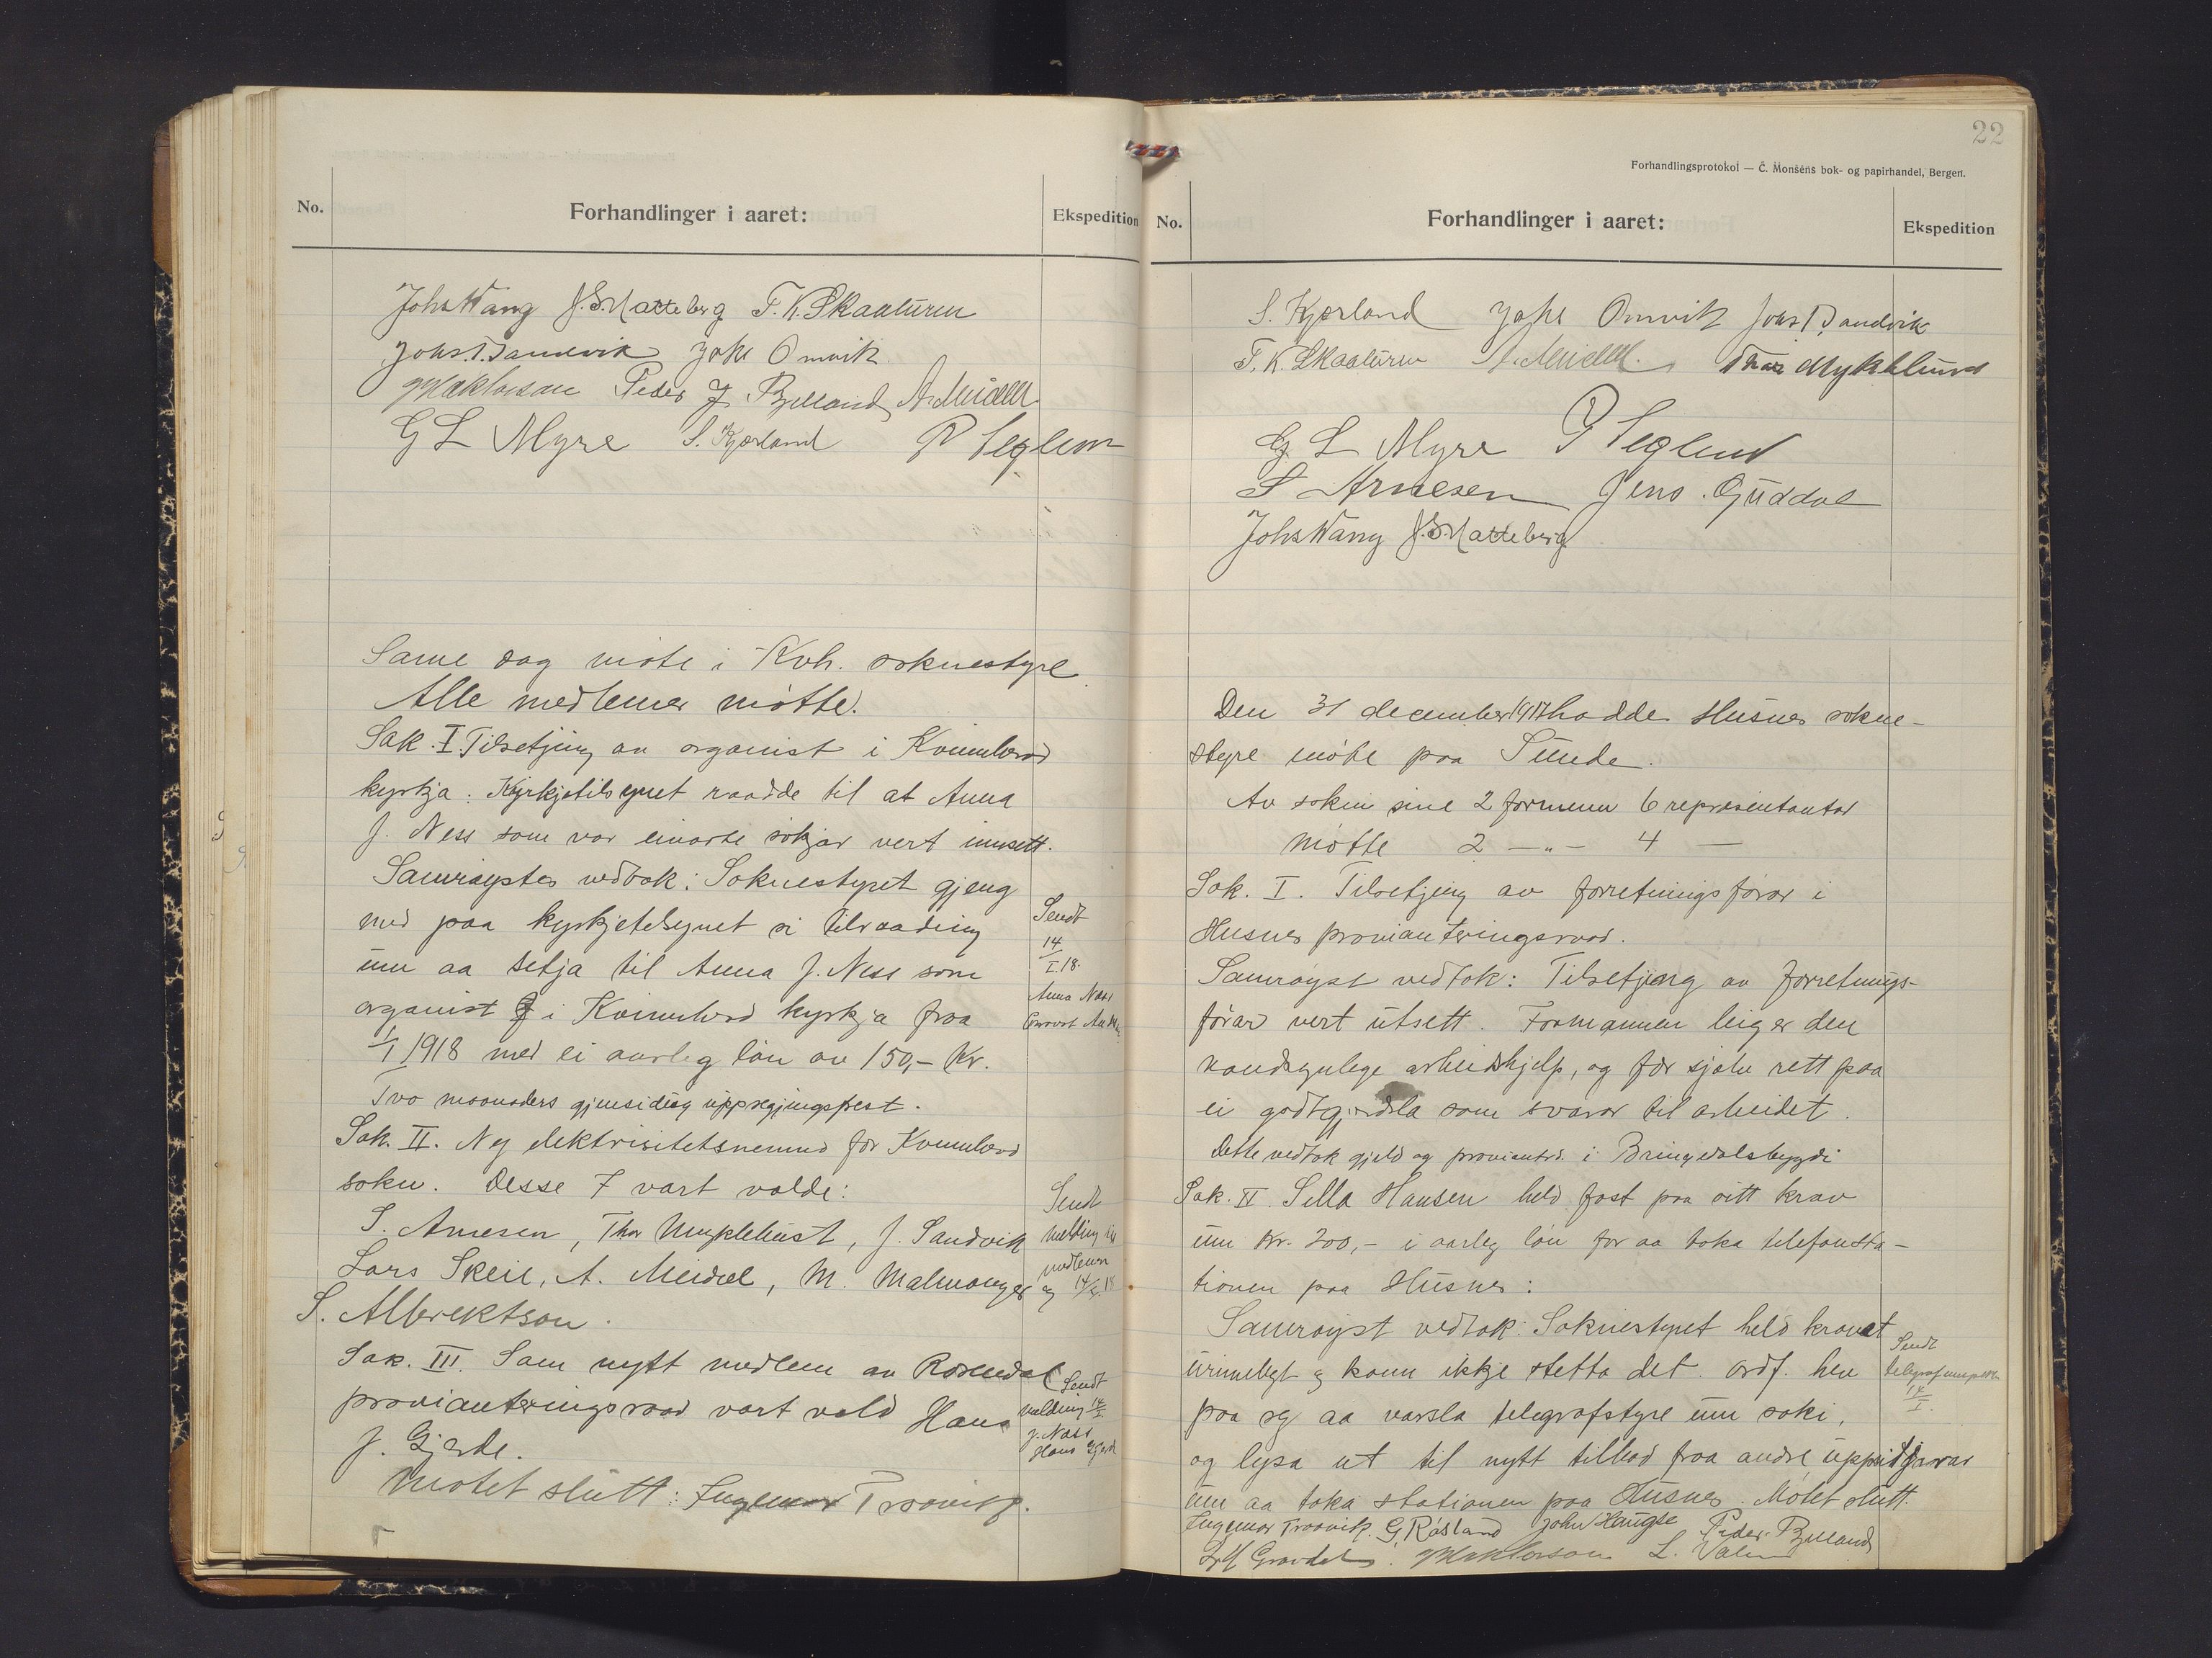 No.
Forhandlinger i aaret:
Ekspedition
Johs Wang J. S. Natteberg T. K. Skaaluren
Johs. T. Sandvik Johs Omvik
Peder J. Bjelland A. Meidell
G L Myre S. Kjærland P Seglem
Same dag møte i Kvh. soknestyre
Alle medlemer møtte.
Sak. I. Tilsetjing av organist i Kvinnherad
kyrkja: Kyrkjetilsynet raadde til at Anna
J. Ness som var einaste søkjar vert innsett.
Samrøystes vedtok: Soknestyret gjeng
med paa kyrkjetilsynet si tilraading
um aa setja til Anna J. Ness som
organist i Kvinnherad kyrkja fraa
1/1 1918 med ei aarleg løn av 150,- Kr.
Tvo maanaders gjensidig uppsegjingsfrest.
Sak. II. Ny elektrisitetsnemnd for Kvinnherad
sokn. Desse 7 vart valde:
S. Arnesen, Thor Myklebust, J. Sandvik
Lars Skeie, A. Meidel, M. Malmanger
S. Albrektson.
Sak. III. Som nytt medlem av Rosendal
provianteringsraad vart vald Hans
J. Gjerde.
Møtet slutt: Ingemar Traavik f.
Sendt
14/I.18.
Anna Næss
Sendt
melding til
medlemn
og 14/I.18
Sendt
melding 14/I
J. Næss
Hans Gjerde
22
Forhandlingsprotokol — C. Monsens bok- og papirhandel, Bergen.
No.
Forhandlinger i aaret:
Ekspedition
S. Kjærland Johs Omvik Johs T. Sandvik
T. K. Skaaluren A. Meidell. Thor Myklebust
G L Myre P Seglem
S Arnesen Jens. Guddal
Johs Wang J. S. Natteberg
Den 31 december 1917 hadde Husnes sokne-
styre møte paa Sunde.
Av sokni sine 2 formenn 6 representantar
møtte 2 —"— 4 —
Sak. I. Tilsetjing av forretningsførar i
Husnes provianteringsraad.
Samrøyst vedtok: Tilsetjing av forretnings-
førar vert utsett. Formannen leiger den
naudsynlege arbeidshjelp, og fær sjølv rett paa
ei godtgjerdsla som svarar til arbeidet.
Dette vedtok gjeld og proviantrd. i Bringedalsbygdi
Sak. II. Silla Hansen held fast paa sitt krav
um Kr. 200,- i aarleg løn for aa taka telefonsta-
tionen paa Husnes:
Samrøyst vedtok: Soknestyret held kravet
urimelegt og kann ikkje stetta det. Ordf. hev
paa seg aa varsla telegrafstyre um saki,
og lysa ut til nytt tilbod fraa andre uppsitjarar
um aa taka stationen paa Husnes. Møtet slutt.
Ingemar Traavik. G. Røsland John Haugse Peder Bjelland
Gravdal. L. Valen
Sendt
14/I.